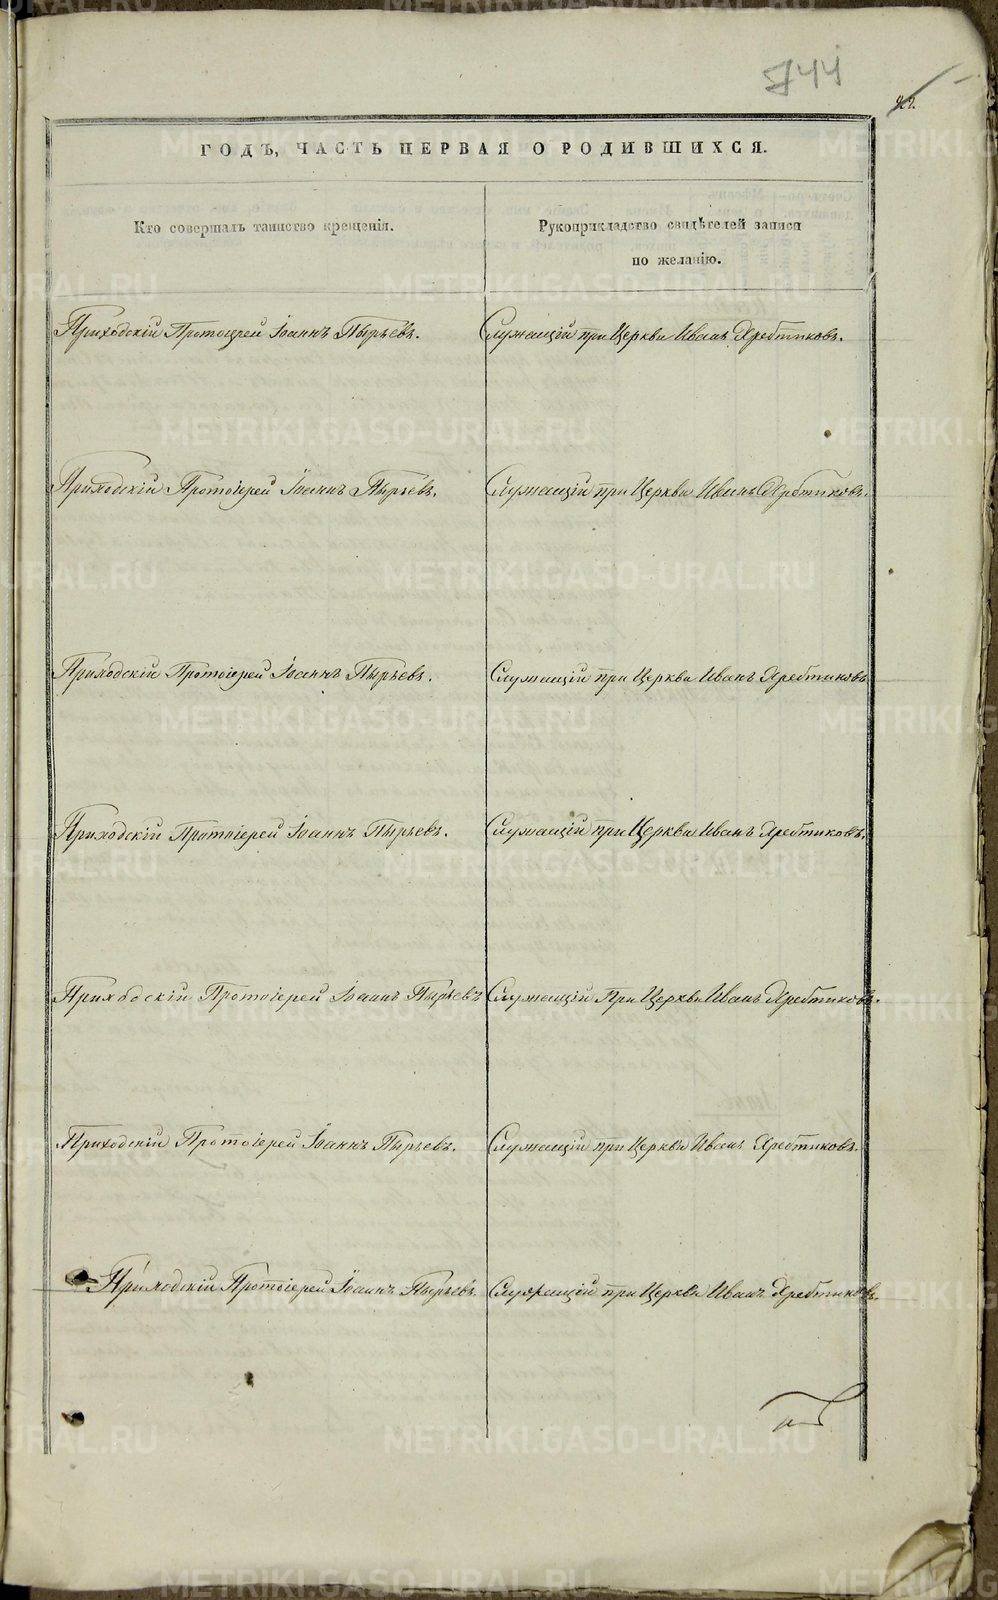 744
ГОДЪ, ЧАСТЬ ПЕРВАЯ О РОДИВШИХСЯ.
Кто совершалъ таинство крещенія.
Рукоприкладство свидѣтелей записи
по желанію.
Приходскій Протоіерей Іоаннъ Пырьевъ.
Служащій при Церкви Иванъ Хребтиковъ.
Приходскій Протоіерей Іоаннъ Пырьевъ.
Служащій при Церкви Иванъ Хребтиковъ.
Приходскій Протоіерей Іоаннъ Пырьевъ.
Служащій при Церкви Иванъ Хребтиковъ
Приходскій Протоіерей Іоаннъ Пырьевъ.
Служащій при Церкви Иванъ Хребтиковъ.
Приходскій Протоіерей Іоаннъ Пырьевъ
Служащій При Церкви Иванъ Хребтиковъ.
Приходскій Протоіерей Іоаннъ Пырьевъ.
Служащій при Церкви Иванъ Хребтиковъ.
Приходскій Протоіерей Іоаннъ Пырьевъ.
Служащій при Церкви Иванъ Хребтиковъ.
METRIKI.GASO-URAL.RU